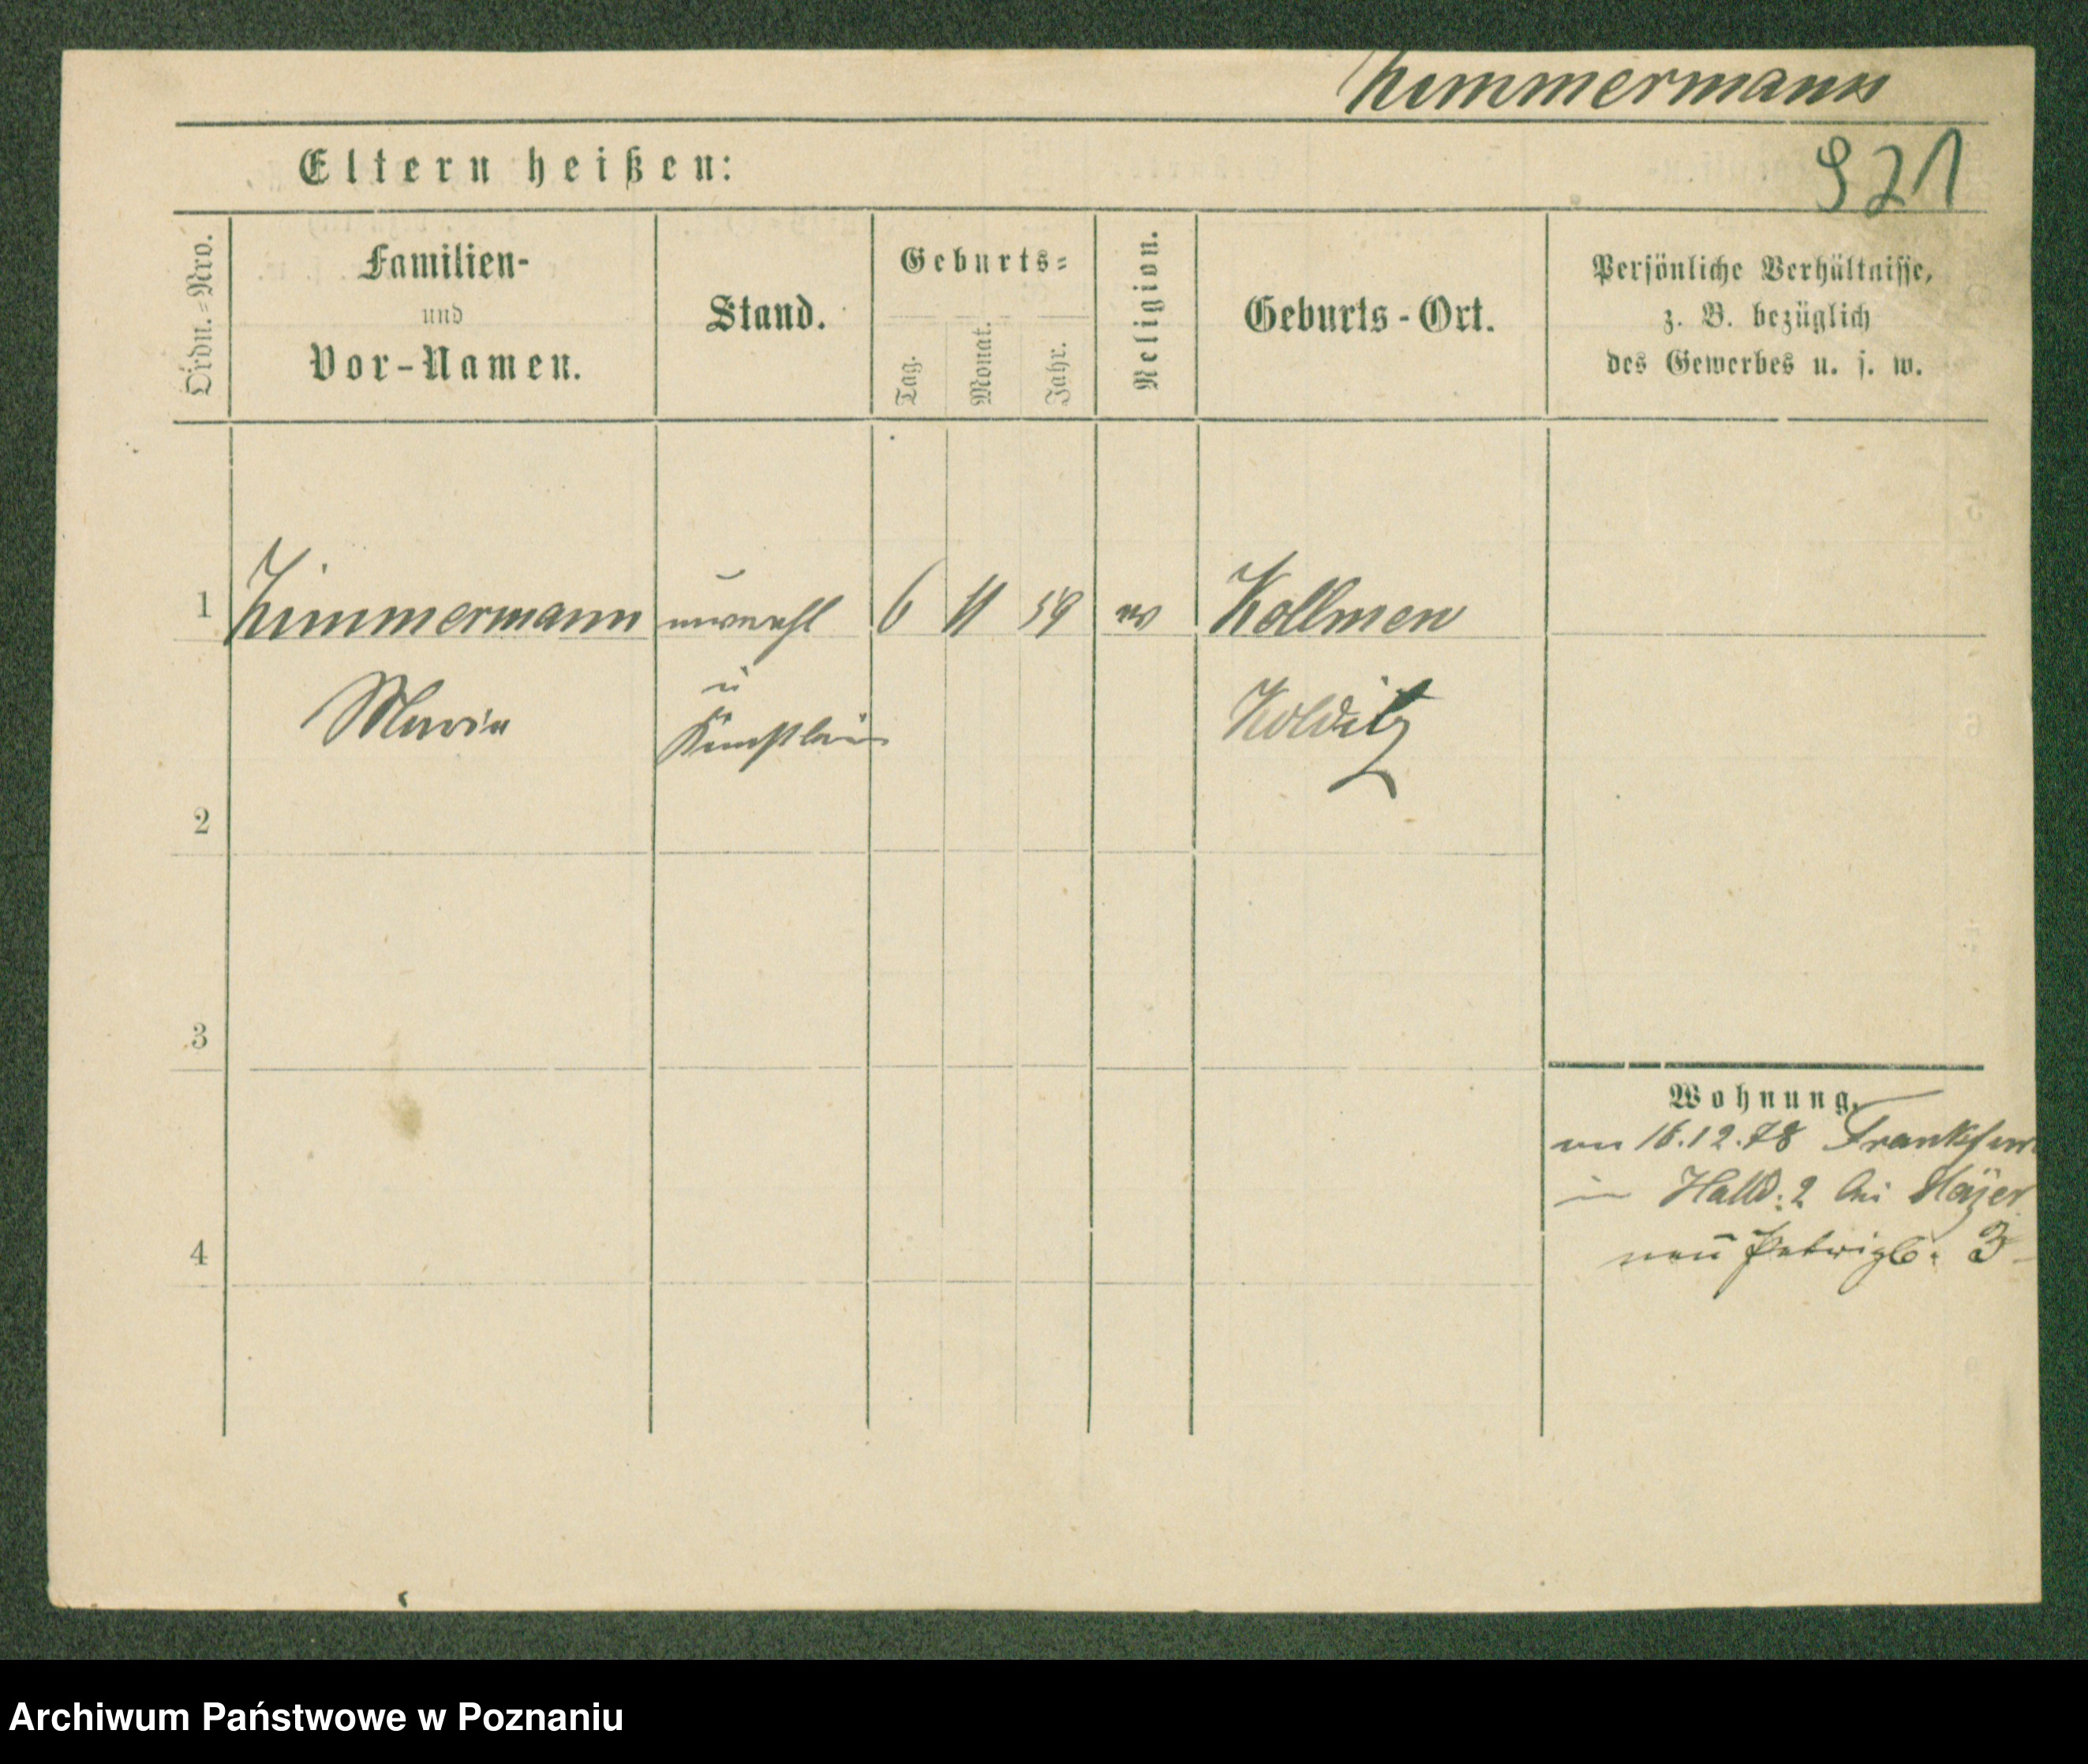 Zimmermann
921
Eltern heißen:
Ordn.=Nro.
Familien-
und
Vor-Namen.
Stand.
Geburts=
Tag.
Monat.
Jahr.
Religion.
Geburts-Ort.
Persönliche Verhältnisse,
z. B. bezüglich
des Gewerbes u. s. w.
1 Zimmermann unverehl 6 11 59 Kollmen
Maria
ü
Künstlerin
Kolditz
2
3
4
Wohnung.
16.12.78 Frankfur
in Halld: 2 bei
3
Archiwum Państwowe w Poznaniu